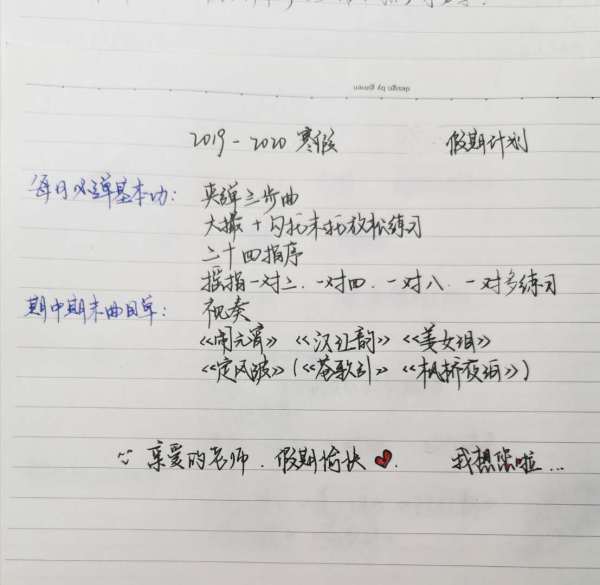 2019-2020 寒假 假期计划
每日必弹基本功: 夹弹三步曲
大撮+勾托抹托放松练习
二十四指序
摇指一对二.一对四.一对八.一对多练习
期中期末曲目单: 视奏
《闹元宵》 《汉江韵》 《姜女泪》
《定风波》(《歌引》 《枫桥夜泊》)
亲爱的老师.假期愉快❤. 我想您啦...
design by